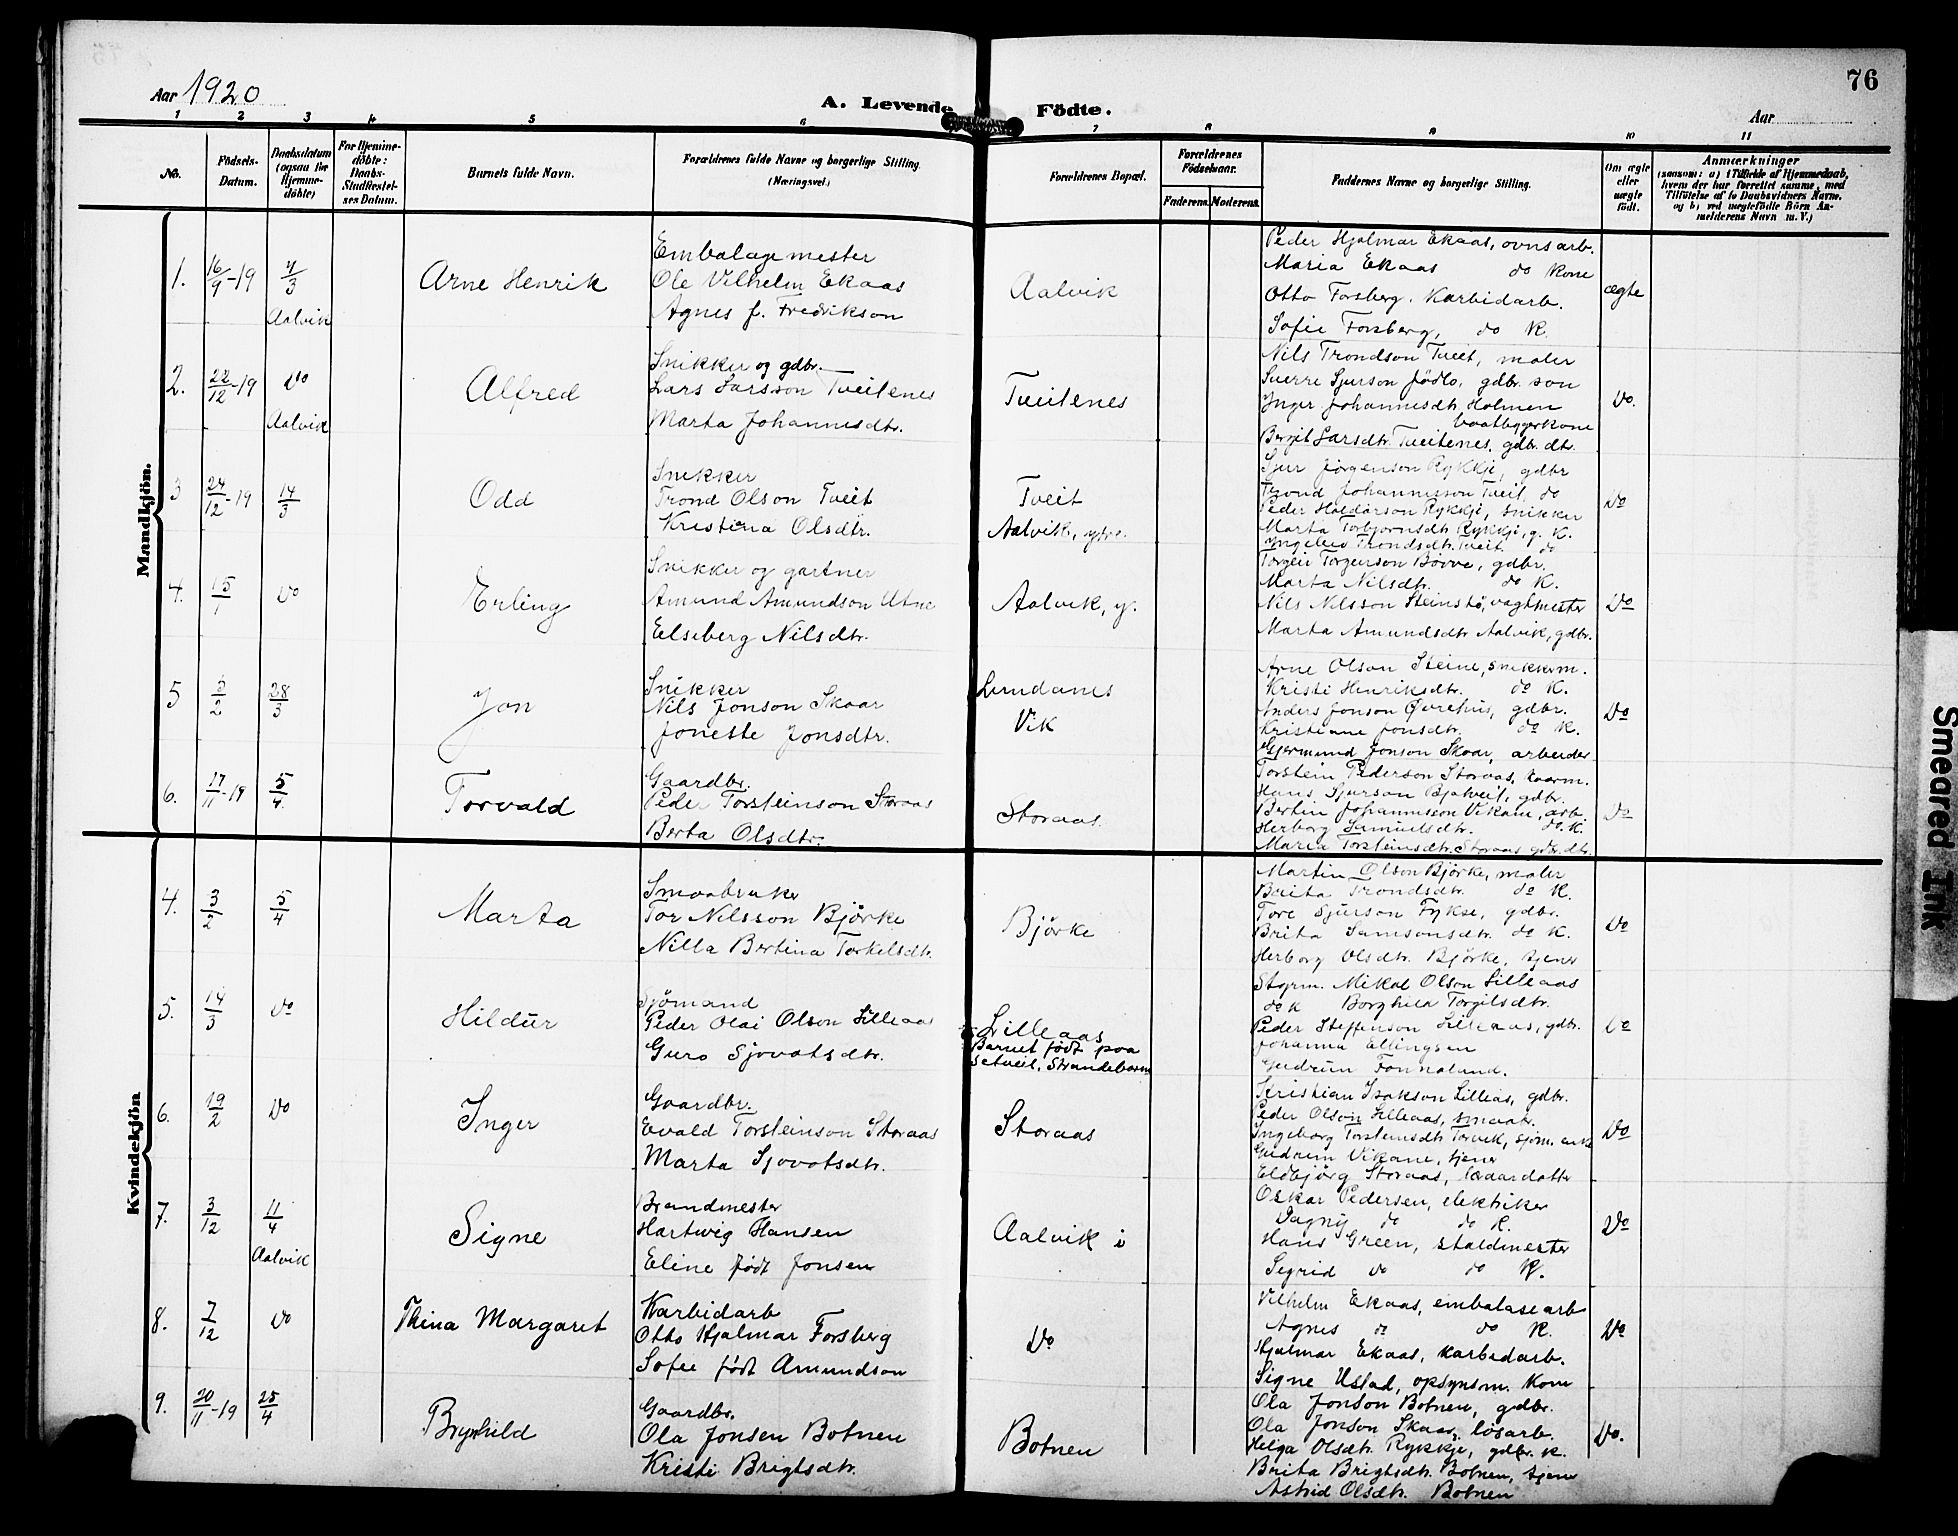 Aar 1920
A. Levende Födte.
76
Aar
1 2 3 4 5 6 7 8 9 10 11
No.
Födsels-Datum.
Daabsdatum (ogsaa for Hjemmedöbte)
For Hjemmedöbte: Daabs-Stadfæstelses Datum.
Barnets fulde Navn.
Forældrenes fulde Navne og borgerlige Stilling. (Næringsvei.)
Forældrenes Bopæl.
Forældrenes Födselsaar.
Faderens. Moderens.
Faddernes Navne og borgerlige Stilling.
Om ægte eller uægte födt.
Anmærkninger
(saasom: a) i Tilfælde af Hjemmedaab, hvem der har forrettet samme, med Tilföielse af to Daabsvidners Navne, og b) ved uægtefödte Börn Anmelderens Navn m. V.)
Mandkjön.
1. 16/9-19 7/3 Aalvik
Arne Henrik
Embalagemester
Ole Vilhelm Ekaas
Agnes f. Fredrikson
Aalvik
Peder Hjalmar Ekaas, ovnsarb.
Maria Ekaas do Kone
Otto Forsberg, Karbidarb.
Sofie Forsberg, do K.
ægte
2. 22/12-19 Do Aalvik
Alfred
Snikker og gdbr.
Lars Larsson Tveitenes
Marta Johannesdtr.
Tveitenes
Nils Trondson Tveit, maler
Sverre Sjurson Jødlo, gdbr. son
Inger Johannesdtr. Holmen
baatbyggerkone
Bergit Larsdtr. Tveitenes, gdbr. dt.
Do.
3 24/12-19 14/3
Odd
Snikker
Trond Olson Tveit
Kristina Olsdtr.
Tveit
Aalvik, ytre.
Sjur Jørgenson Rykkje, gdbr
Trond Johannesson Tveit, do
Peder Haldorson Rykkje, snikker
Marta Torbjørnsdtr. Rykkje, g. K.
Ingebor Trondsdtr. Tveit do
Do
4. 15/1 Do
Erling
Snikker og gartner
Amund Amundson Utne
Elseberg Nilsdtr.
Aalvik, y.
Torgeir Torgeirson Bövve, gdbr.
Marta Nilsdtr. do K.
Nils Nilsson Steinstö, vagtmester
Marta Amundsdtr Aalvik, gdbr.
Do
5 3/2 28/3
Jon
Snikker
Nils Jonson Skaar
Joneste Jonsdtr.
Lundanes
Vik
Arne Olson Steine, snikkerm.
Kristi Henriksdtr. do K.
Anders Jonson Øvrehus, gdbr.
Kristiane Jonsdtr. do K.
Gjermund Jonson Skaar, arbeider
Do
6. 17/11-19 5/4.
Torvald
Gaardbr.
Peder Torsteinson Storaas
Berta Olsdtr.
Storaas.
Torstein Pederson Storaas, kaarm.
Hans Sjurson Bjotveit, gdbr.
Bertin Johannesson Vikane, arb.
Herborg Samuelsdtr. do. K.
Maria Torsteinsdtr. Storaas gdbr. dtr.
Do
Kvindekjön
4. 3/2 5/4
Marta
Smaabruker
Tor Nilsson Björke
Nilla Bertina Torkelsdtr.
Björke
Martin Olson Björke, maler
Brita Trondsdtr. do K.
Tore Sjurson Fykse, gdbr.
Brita Samsonsdtr. do K.
Herborg Olsdtr. Björke, tjener
Do
5. 14/3 Do
Hildur
Sjömand
Peder Olai Olson Lilleaas
Guro Sjovatsdtr.
Lilleaas
Barnet födt paa
Setveit, Strandebarm
Styrm. Mikal Olson Lilleaas
do K Borghild Torgilsdtr.
Peder Steffenson Lilleaas, gdbr.
Johanna Ellingsen
Gudrun Fonnaland.
Do
6. 19/2 Do
Inger
Gaardbr.
Evald Torsteinson Storaas
Marta Sjovatsdtr.
Storaas
Kristian Isakson Lilleaas, gdbr.
Peder Olson Lilleaas, smaabr.
Ingeborg Torsteinsdtr Torvik, sjöm. enke
Gudrun Vikane, tjener
Eldbjörg Storaas, kaardatter
Do
7. 3/12 11/4 Aalvik
Signe
Brandmester
Hartwig Hansen
Eline födt Jonsen
Aalvik i
Oskar Pedersen, elektriker
Dagny do do K.
Hans Green, staldmester
Sigrid do do K.
Do
8. 7/12 Do
Thina Margaret
Karbidarb
Otto Hjalmar Forsberg
Sofie födt Amundson
Do
Vilhelm Ekaas, embalasearb
Agnes do do K.
Hjalmar Ekaas, karbidarb.
Signe Ustad, opsynsm. Kone
Do
9. 20/11-19 25/4
Brynhild
Gaardbr.
Ola Jonsen Botnen
Kristi Brigtsdtr.
Botnen
Ola Jonson Botnen, gdbr.
Ola Jonson Skaar, lösarb.
Helga Olsdtr. Rykkje, gdbr. K.
Brita Brigtsdtr. Botnen, tjener
Astrid Olsdtr. Botnen
Do.
Smeared Ink